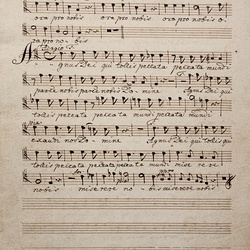 ora pro nobis ora pro nobis ora pro nobis o
ra pro nobis
Adagio
Agnus Dei qui tollis peccata peccata mundi
parce nobis parce nobis Domine Agnus Dei qui
tollis peccata peccata mundi peccata mundi
exaudi nos Domine Agnus Dei qui tollis qui
tollis peccata peccata peccata mundi mise re re
nobis miserere nobis miserere nobis